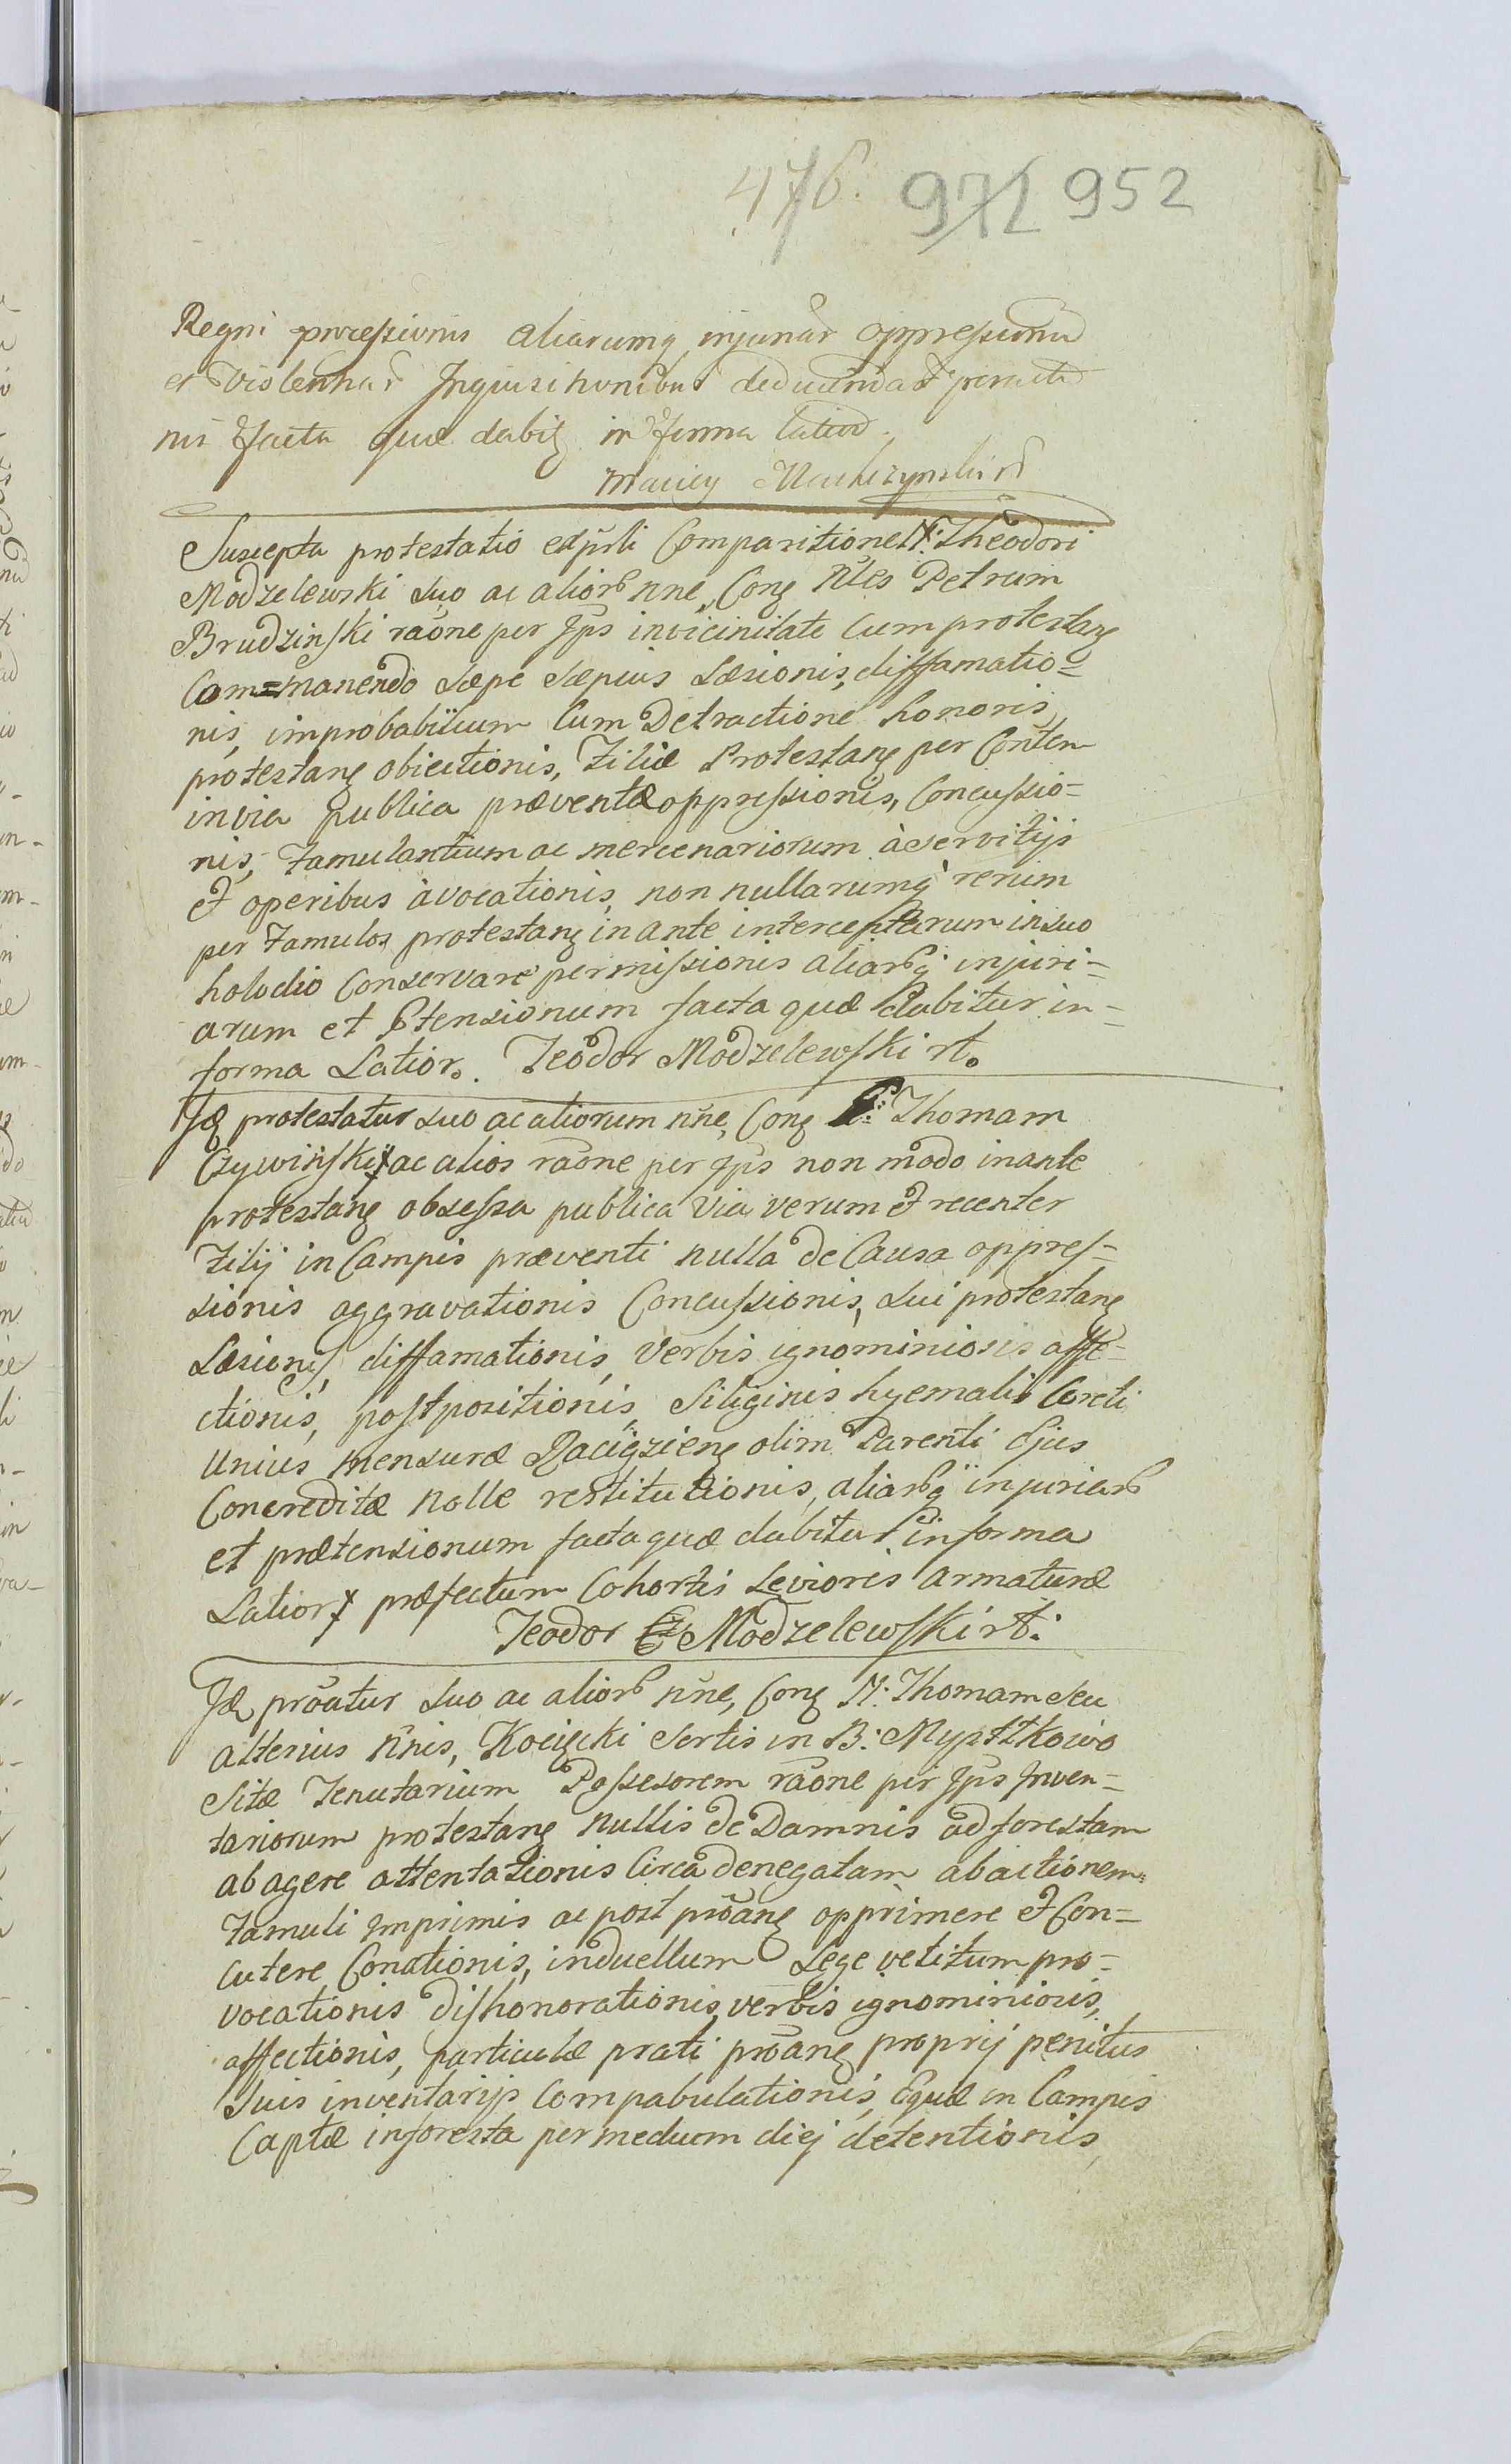 476. 971 952
Regni processionis aliarumq injuriar oppressionu
et violentiar Inquisitionibus deducendar
nis facta quæ dabit in forma latior.
Maciey
Suscepta protestatio ex psnli Comparitione N: Theodori
Modzelewski suo ac aliorb nne, Cong Nles Petrum
Brudzinski raõne per Jps in vicinitate cum protestang
Com=manendo sæpe sæpius Læsionis, diffamatio=
nis, improbabilium Cum Detractione honoris,
protestang obiectionis, Filiæ Protestang per Conten
in via publica præventæ oppressionis, Concussio=
nis, Famulantium ac mercenariorum à servitijs
et operibus àvocationis, non nullarumq rerum
per Famulos protestang in ante interceptarum in suo
holodio Conservare permissionis aliarbq injuri=
arum et Ptensionum facta quæ dabitur in=
forma Latior. Teodor Modzelewski rt.
Jd protestatur suo ac aliorum nne, Cong P: Thomam
Czywiński ac alios raõne per Jps non modo in ante
protestang obsessa publica via verum et recenter
Filij in Campis præventi nulla de Causa oppres=
sionis aggravationis Concussionis, sui protestang
Læsionis, diffamationis, verbis ignominiosis affe=
ctionis, postpositionis, Siliginis hyemalis Coreti
unius mensuræ Raciązieng olim Parenti Ejus
Concreditæ nolle restitutionis, aliarbq injuriarb
et prætensionum facta quæ dabitur in forma
Latior præfectum Cohortis Levioris armaturæ
Teodor Modzelewski rt:
Jd proãtur suo ac aliorb nne, Cong N: Thomam seu
alterius nnis, Kocięcki Sortis in B: Mystkowo
Sitæ Tenutarium Possessorem raõne per Jps Inven=
tariorum protestang nullis de Damnis ad forestam
abagere attentationis Circa denegatam abactionem
Famuli Imprimis ac post proãng opprimere et Con=
cutere Conationis, in duellum Lege vetitum pro=
vocationis dishonorationis, verbis ignominiosis,
affectionis, particulæ prati proãng proprij penitus
suis inventarijs Compabulationis, Equæ in Campis
Captæ in foresta per medium diej detentionis,